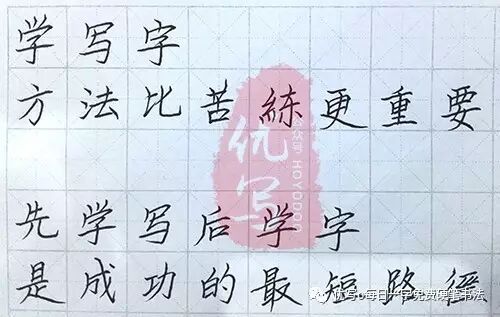 学写字
方法比苦練更重要
先学写后学字
是成功的最短路径
优写
HOYODOO
优写o每日一字免费硬笔书法